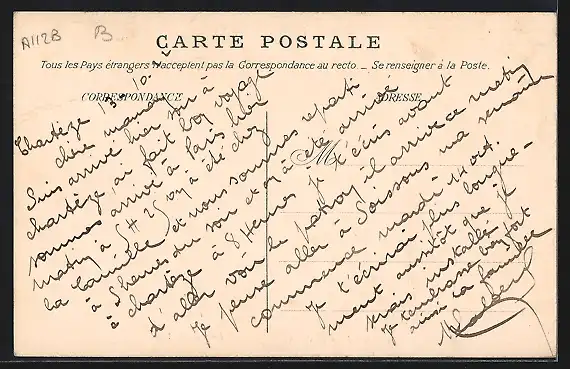 A112B
B
CARTE POSTALE
Tous les Pays étrangers n'acceptent pas la Correspondance au recto _ Se renseigner à la Poste.
CORRESPONDANCE
ADRESSE
M
Chartèze 13. 10.
chère maman
Suis arrivé hier soir à
chartèze, ai fait bon voyage
sommes arrivé à Paris hier
matin à 5H 25 on a été chez
la famille et nous sommes reparti
à 5 heures du soir et on a été arrivé
à chartèze à 8 Heures je t'écris avant
d'aller voir le patron il arrive ce matin
je pense aller à Soissons ma semaine
commence mardi 14 oct.
je t'écrirai plus longue-
ment aussitôt que je
serais installé
je t'embrasse bien fort
ainsi la famille